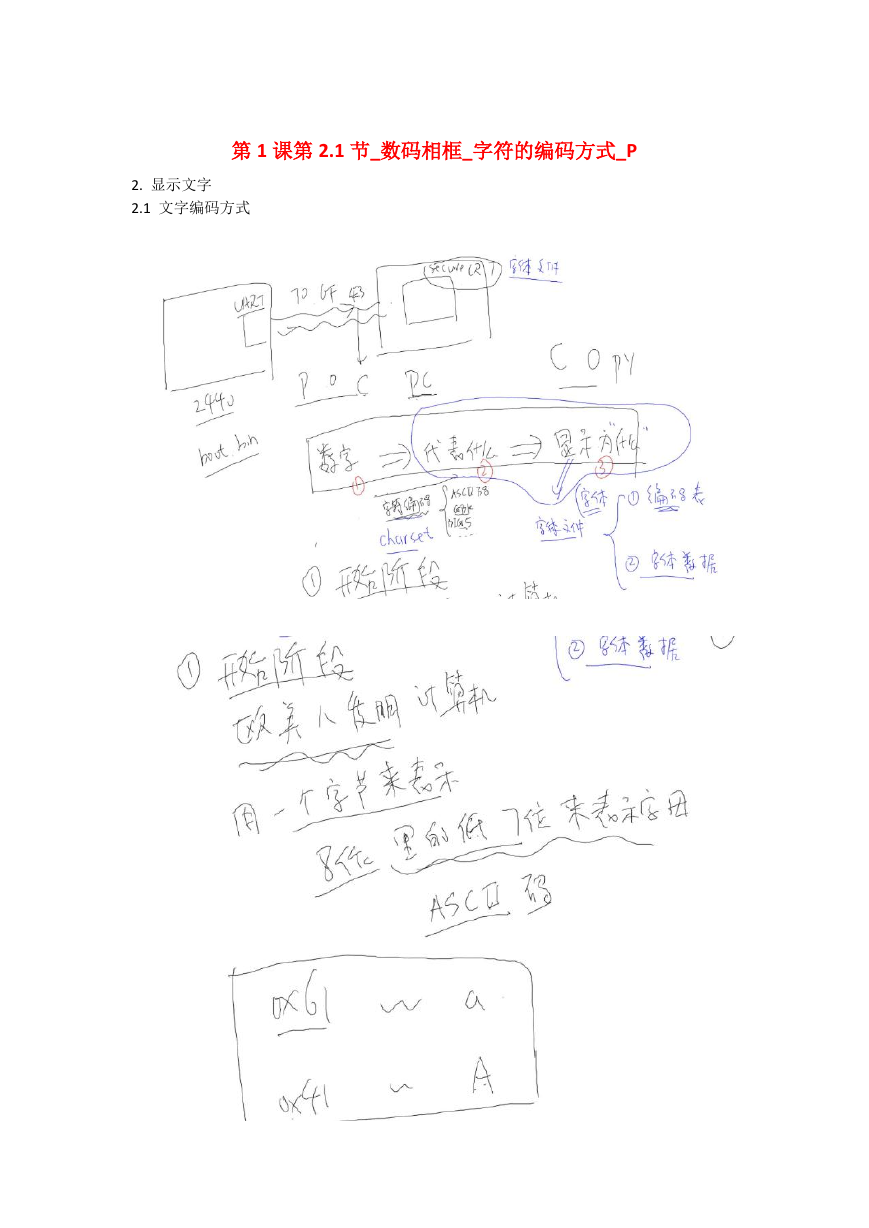 第 1 课第 2.1 节_数码相框_字符的编码方式_P
2. 显示文字
2.1 文字编码方式
secureCRT 字体文件
UART 70 6F 43
2440 P O C PC C O py
boot.bin
数字 ⇒ 代表什么 ⇒ 显示为"什么"
① ② ③
字符编码 ASCII码 字体 ① 编码表
GBK
BIG5
...
charset 字体文件
② 字体数据
① 开始阶段
计算机
① 开始阶段 ② 字体数据
欧美人发明计算机
用一个字节来表示
8位里的低7位来表示字母
ASCII 码
0x61 ~ a
0x41 ~ A